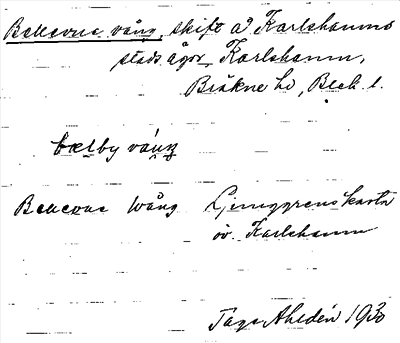 Bellevue vång, skift å Karlshamns
stads ägor, Karlshamn,
Bräkne hd, Blek. l.
bælby våŋ
Bellevue Wång Ljunggrens karta
öv. Karlshamn
Tage Ahldén 1930